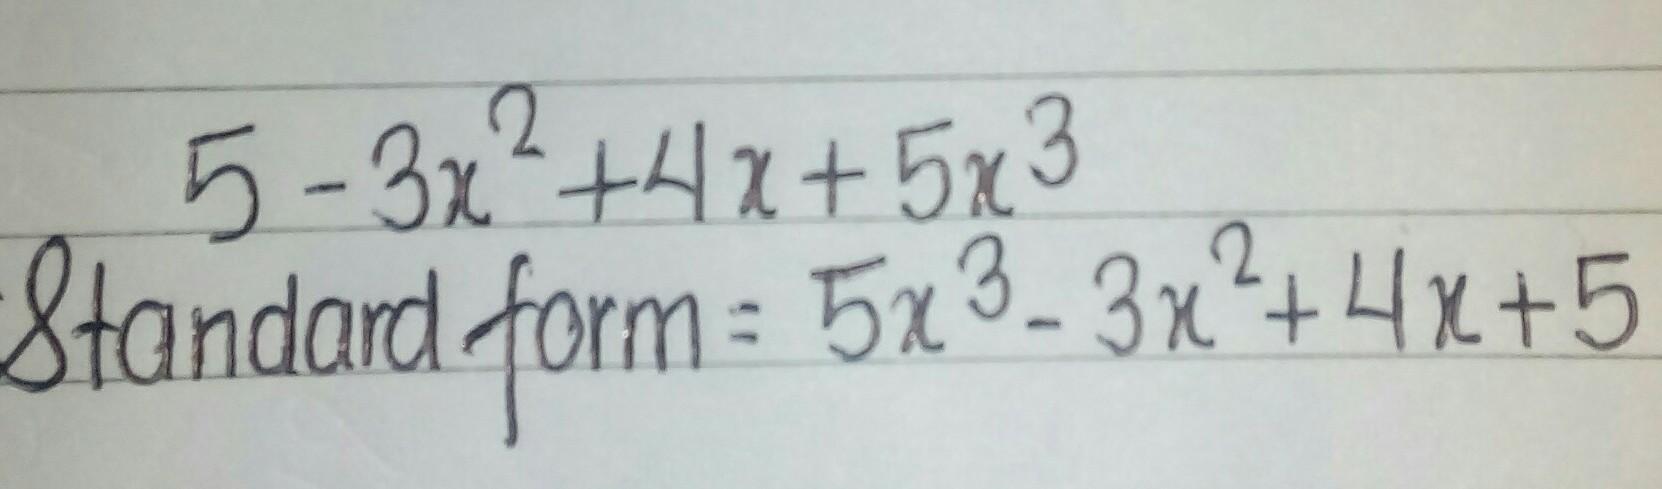 5 - 3x² + 4x + 5x³
Standard form = 5x³ - 3x² + 4x + 5